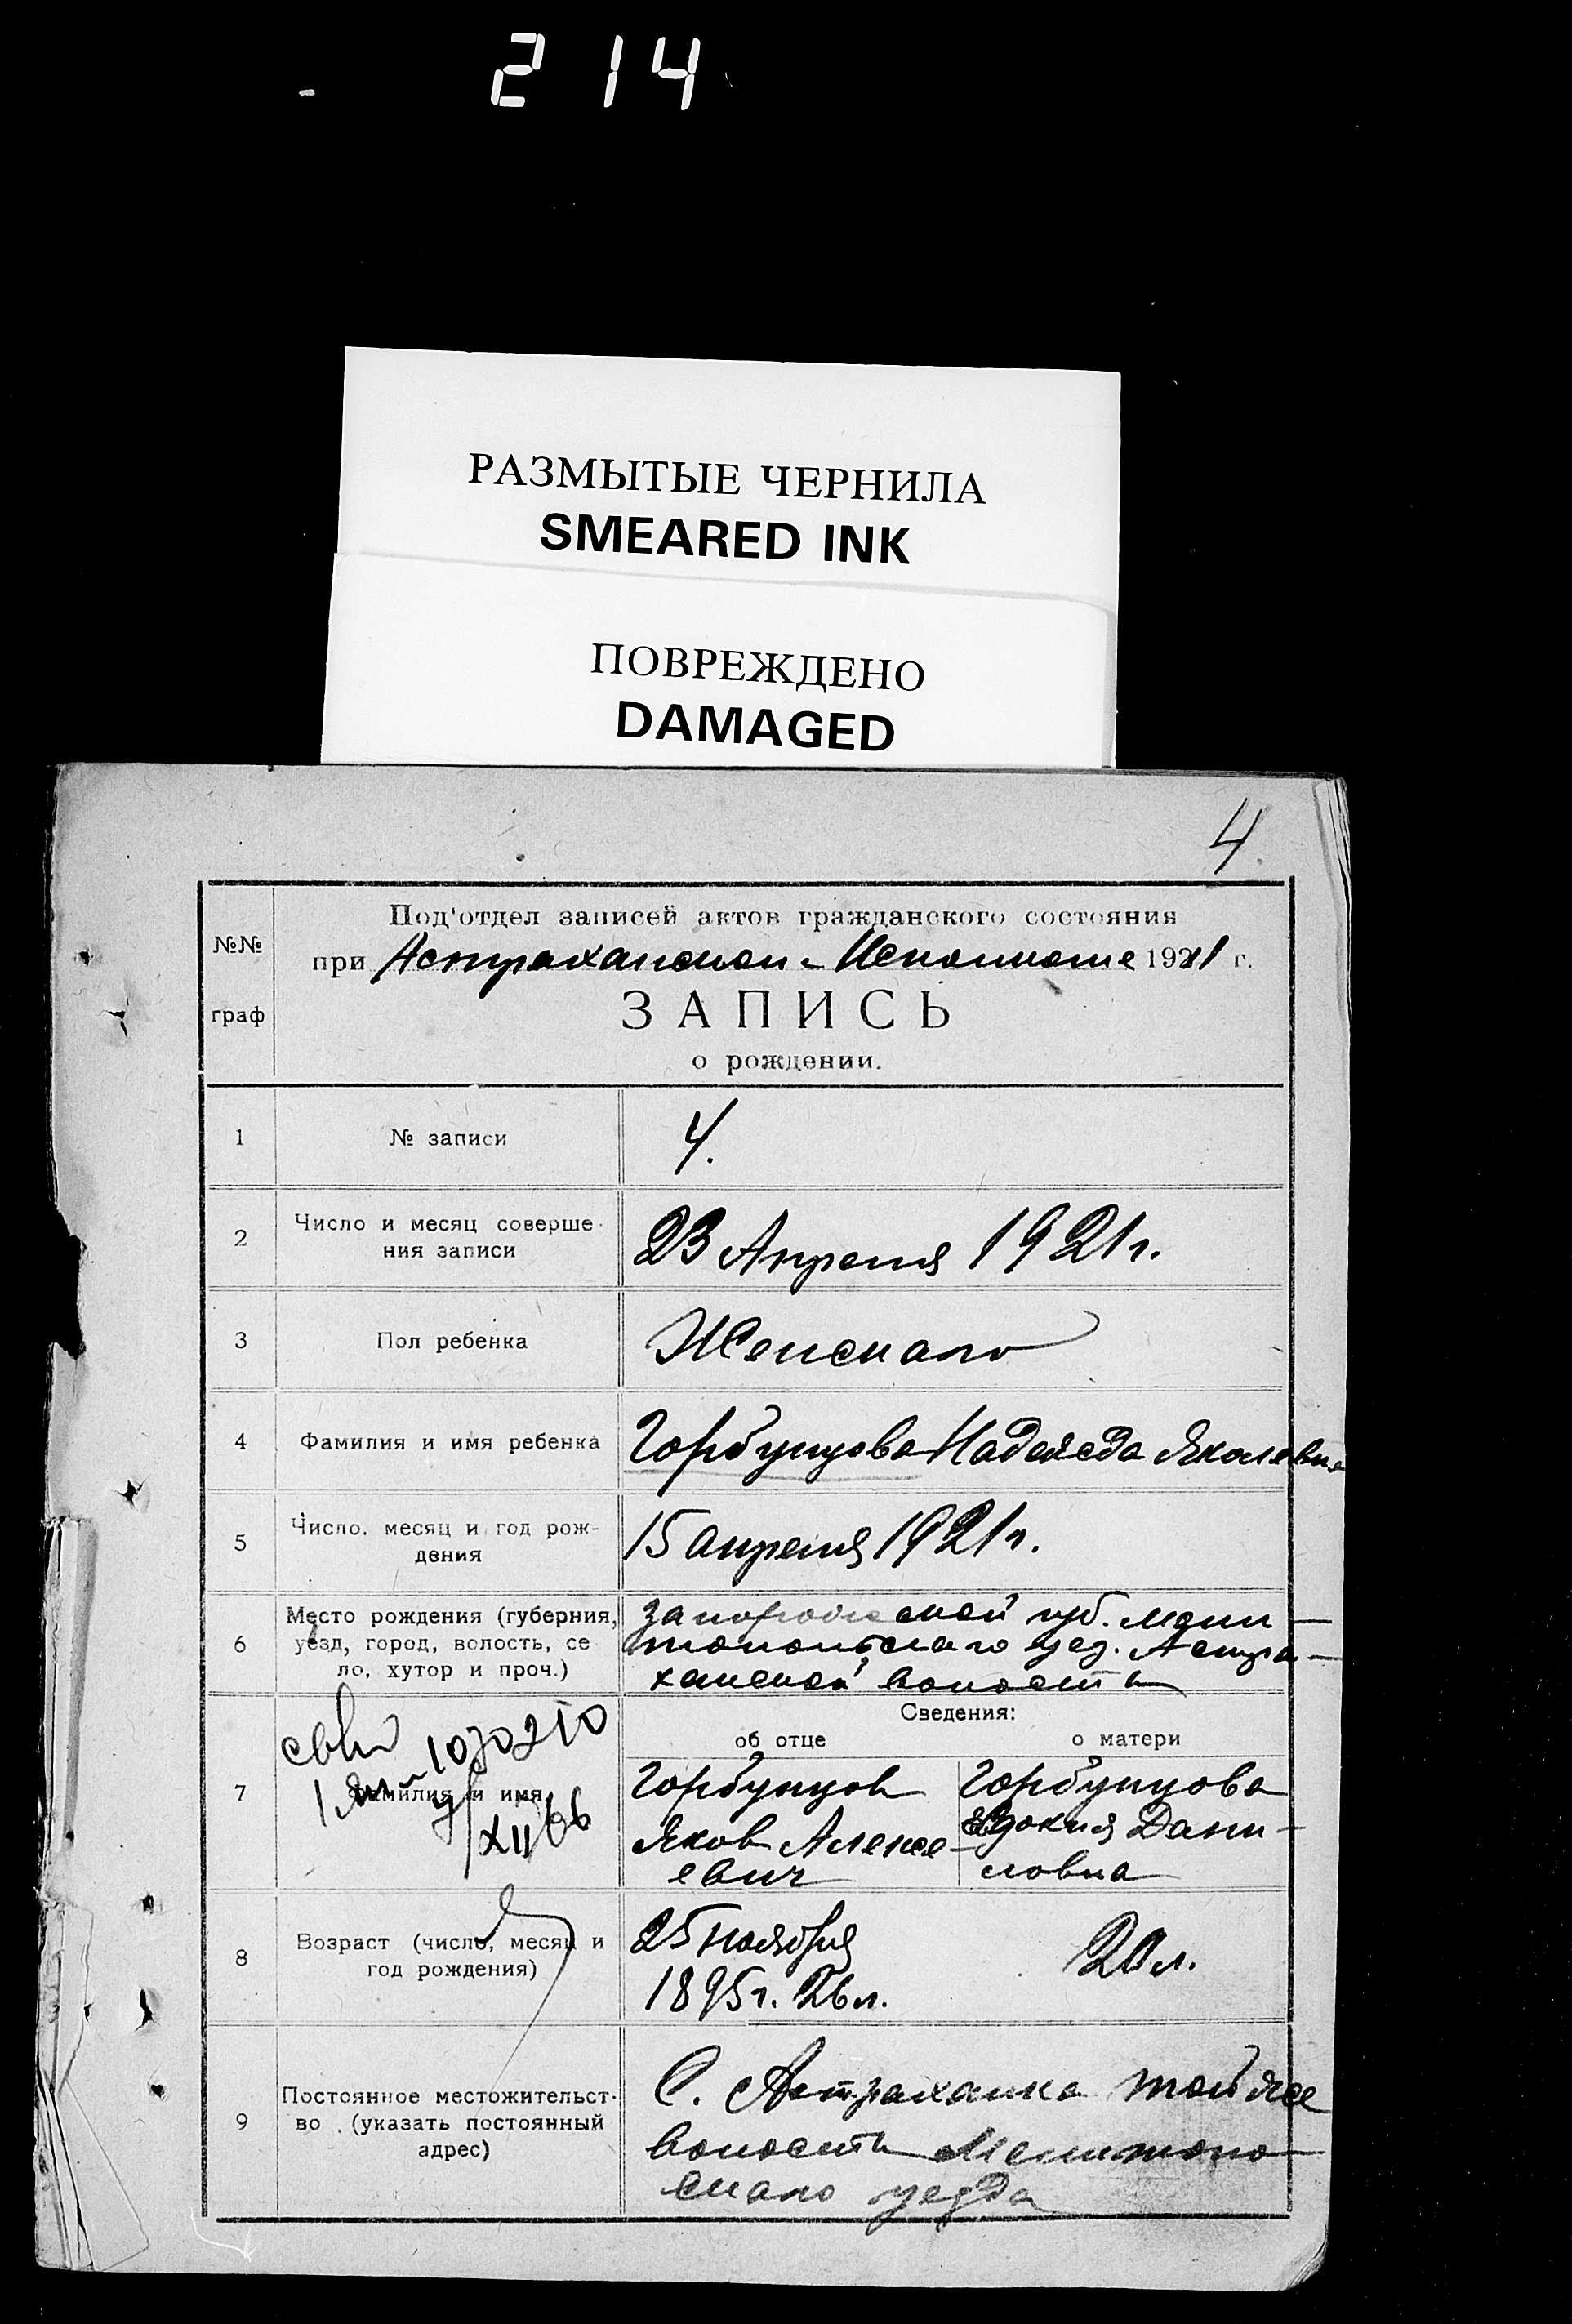 214
РАЗМЫТЫЕ ЧЕРНИЛА
SMEARED INK
ПОВРЕЖДЕНО
DAMAGED
4
№№
граф
Под'отдел записей актов гражданского состояния
при Астраханском Исполкоме 1921 г.
ЗАПИСЬ
о рождении.
1
№ записи
4.
2
Число и месяц соверше-
ния записи
23 Апреля 1921 г.
3
Пол ребенка
Женскаго
4
Фамилия и имя ребенка
Горбунцова Надежда Яковлевна
5
Число, месяц и год рож-
дения
15 апреля 1921 г.
6
Место рождения (губерния,
уезд, город, волость, се
ло, хутор и проч.)
Запорожской губ. Мели-
топольскаго уез. Астра-
ханской волости
Сведения:
об отце
о матери
7
Фамилия и имя
1070210
XII 66
Горбунцов
Яков Алексе-
евич
Горбунцова
Евдокия Дани-
ловна
8
Возраст (число, месяц и
год рождения)
25 ноября
1895 г. 26 л.
20 л.
9
Постоянное местожительст-
во (указать постоянный
адрес)
С. Астраханка той же
волости Мелитопо-
скаго уезда